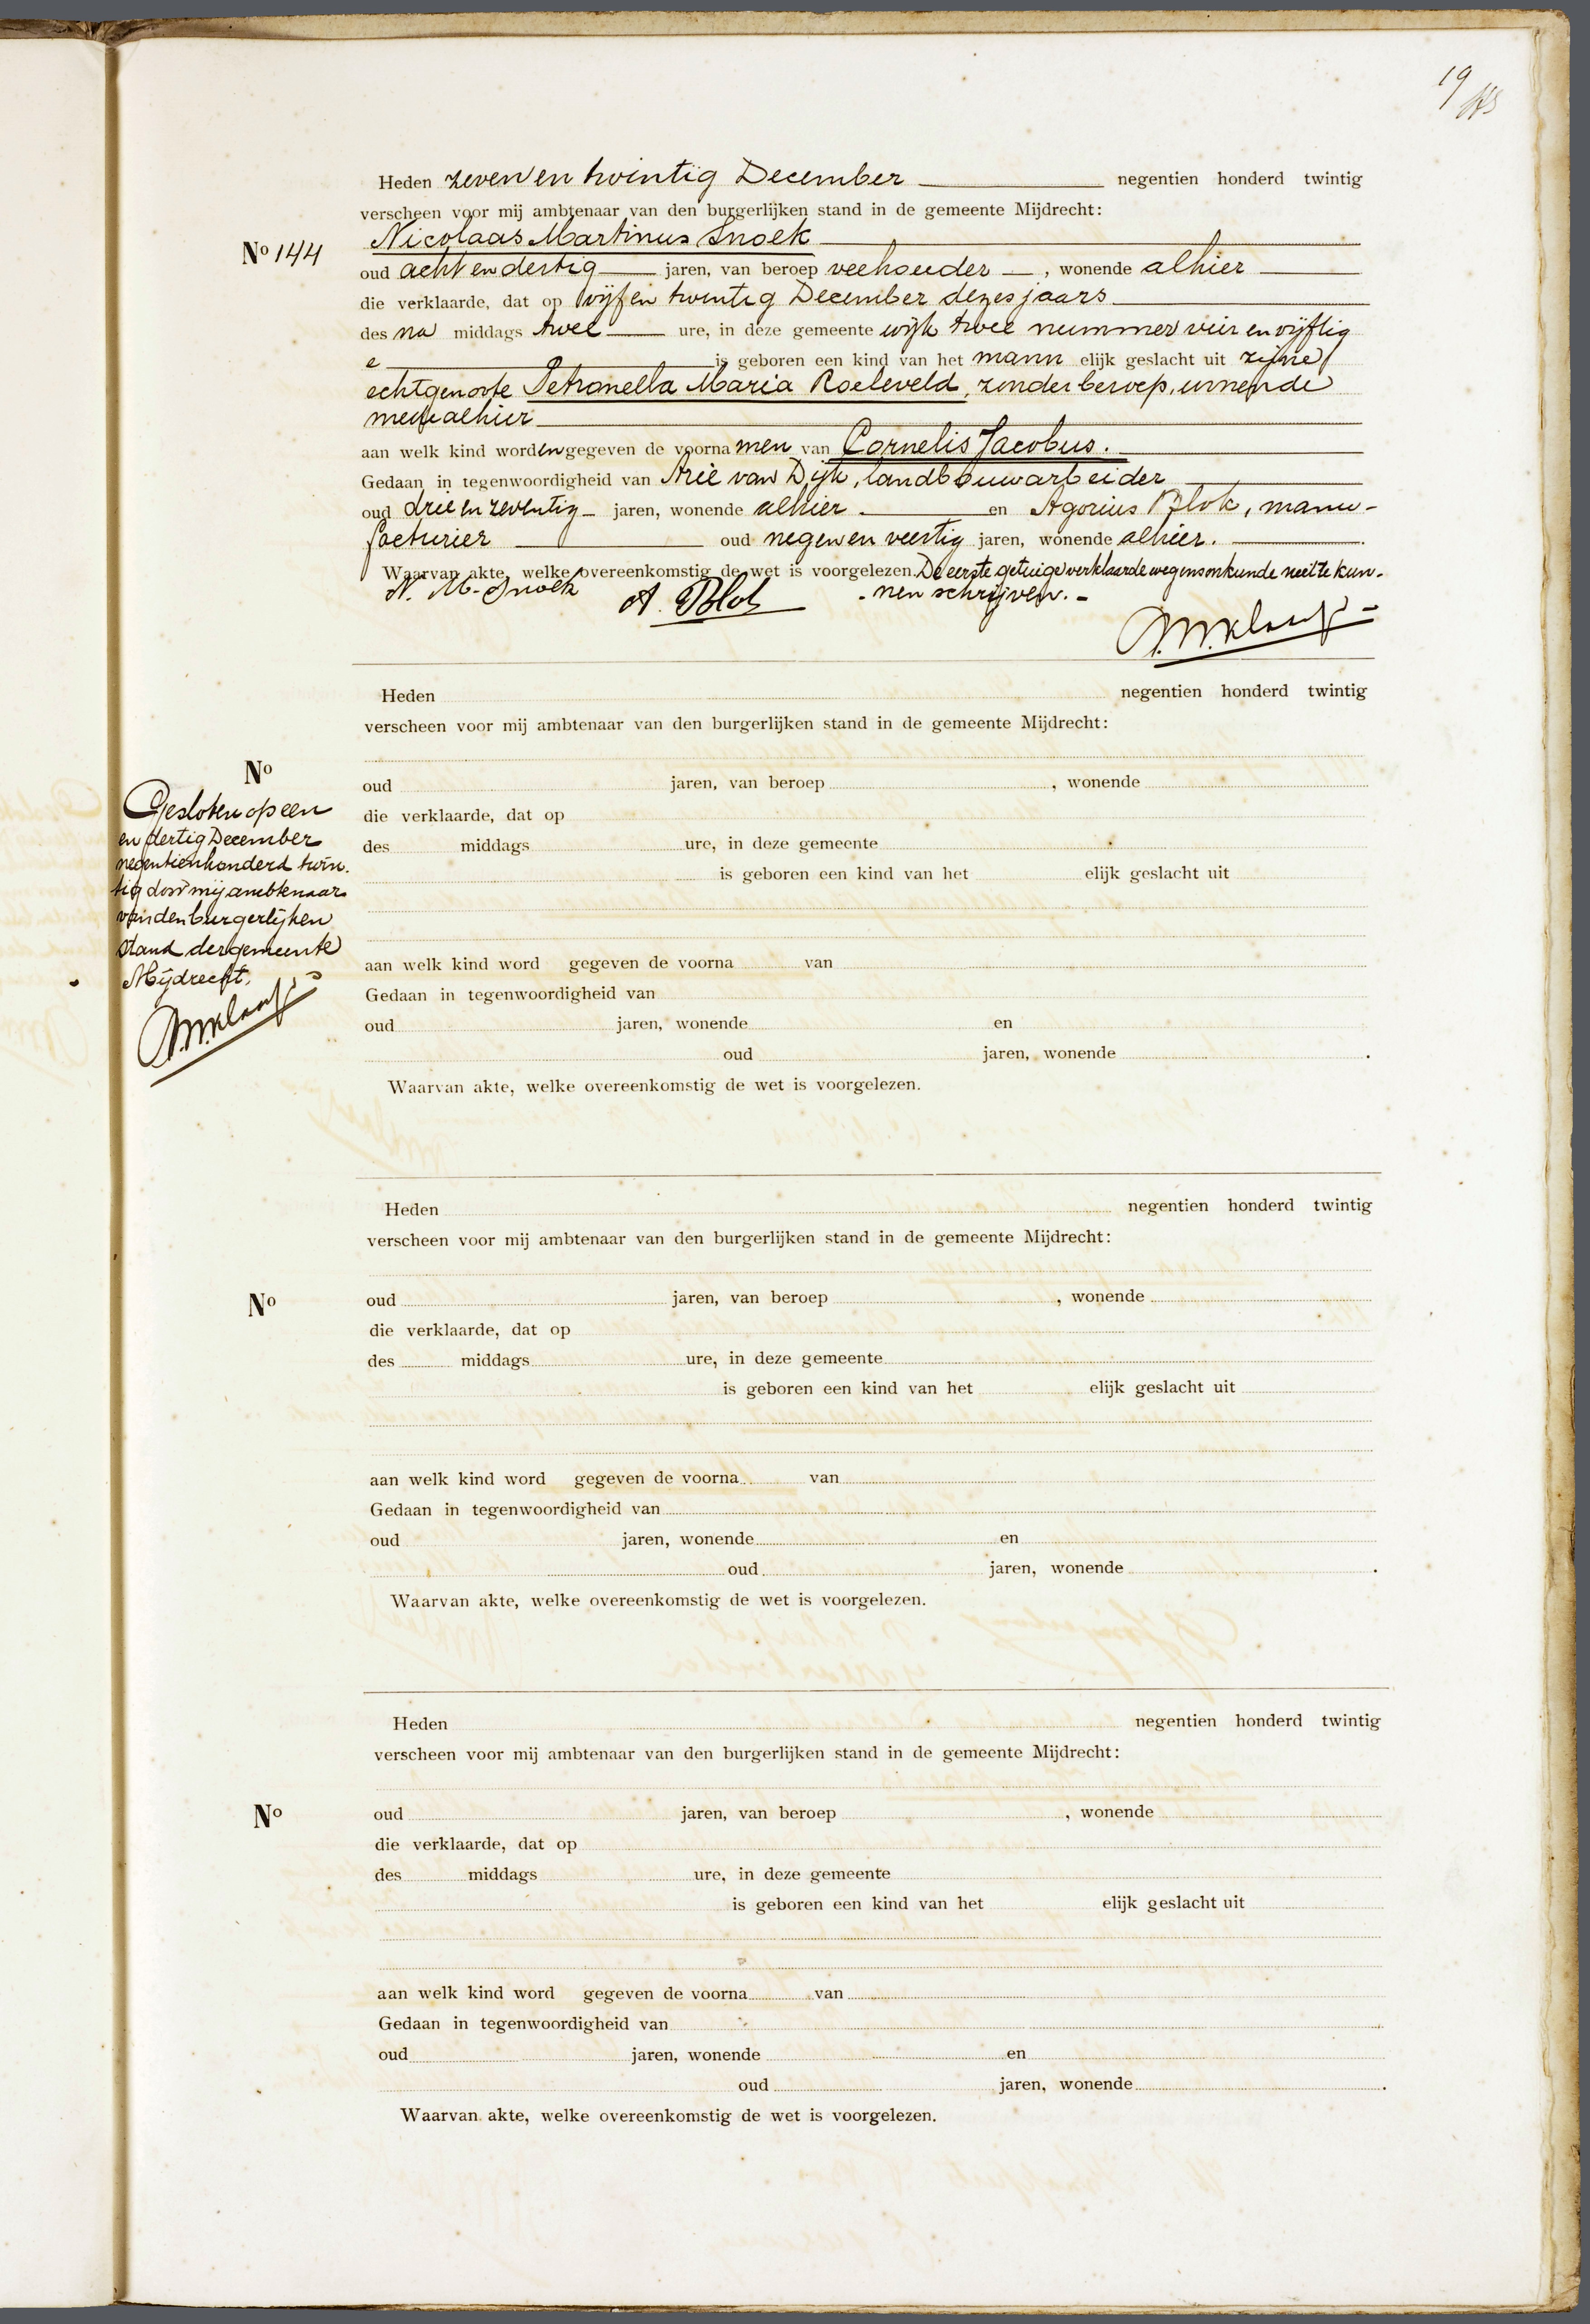 19
Heden zeven en twintig December negentien honderd twintig
verscheen voor mij ambtenaar van den burgerlijken stand in de gemeente Mijdrecht:
No 144 Nicolaas Martinus Snoek
oud acht en dertig jaren, van beroep veehouder, wonende alhier
die verklaarde, dat op vijf en twintig December dezes jaars
des na middags twee ure, in deze gemeente wijk twee nummer vier en vijftig
e is geboren een kind van het mann elijk geslacht uit zijne
echtgenoote Petronella Maria Roeleveld, zonder beroep, wonende
mede alhier
aan welk kind worden gegeven de voornamen van Cornelis Jacobus.
Gedaan in tegenwoordigheid van Arie van Dijk, landbouwarbeider
oud drie en zeventig jaren, wonende alhier en Agorius Blok, manu-
facturier oud negen en veertig jaren, wonende alhier.
Waarvan akte, welke overeenkomstig de wet is voorgelezen. De eerste getuige verklaarde wegens onkunde niet te kun-
nen schrijven.
N. M. Snoek A. Blok
Heden negentien honderd twintig
verscheen voor mij ambtenaar van den burgerlijken stand in de gemeente Mijdrecht:
No
oud jaren, van beroep , wonende
die verklaarde, dat op
des middags ure, in deze gemeente
is geboren een kind van het elijk geslacht uit
aan welk kind word gegeven de voorna van
Gedaan in tegenwoordigheid van
oud jaren, wonende en
oud jaren, wonende .
Waarvan akte, welke overeenkomstig de wet is voorgelezen.
Gesloten op een
en dertig December
negentienhonderd twin-
tig door mij ambtenaar
van den burgerlijken
stand der gemeente
Mijdrecht,
Heden negentien honderd twintig
verscheen voor mij ambtenaar van den burgerlijken stand in de gemeente Mijdrecht:
No
oud jaren, van beroep , wonende
die verklaarde, dat op
des middags ure, in deze gemeente
is geboren een kind van het elijk geslacht uit
aan welk kind word gegeven de voorna van
Gedaan in tegenwoordigheid van
oud jaren, wonende en
oud jaren, wonende .
Waarvan akte, welke overeenkomstig de wet is voorgelezen.
Heden negentien honderd twintig
verscheen voor mij ambtenaar van den burgerlijken stand in de gemeente Mijdrecht:
No
oud jaren, van beroep , wonende
die verklaarde, dat op
des middags ure, in deze gemeente
is geboren een kind van het elijk geslacht uit
aan welk kind word gegeven de voorna van
Gedaan in tegenwoordigheid van
oud jaren, wonende en
oud jaren, wonende .
Waarvan akte, welke overeenkomstig de wet is voorgelezen.